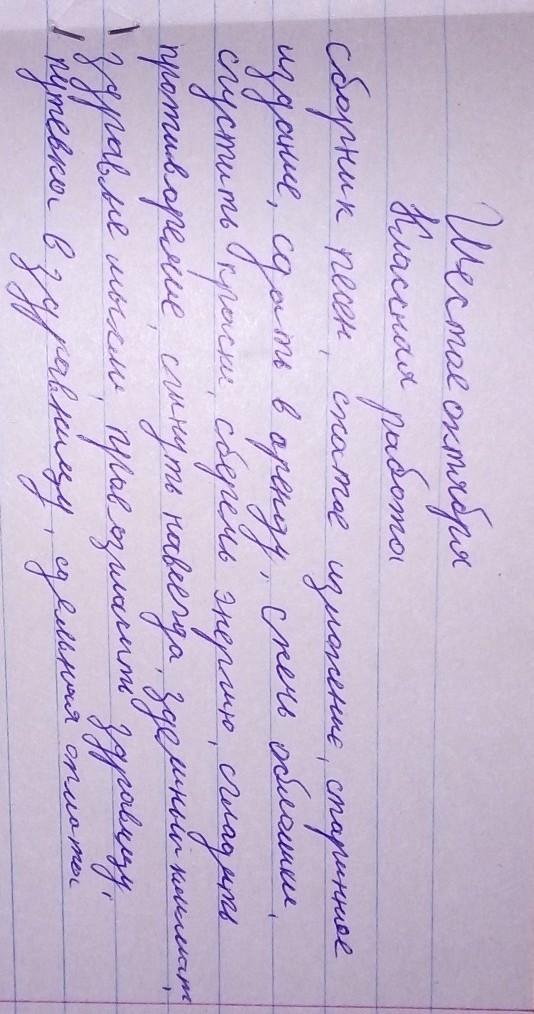 Шестое октября
Классная работа
сборник песен, сжатое изложение, старинное
издание, сдать в аренду, сжечь обломки,
сгустить краски, сберечь энергию, сгладить
противоречие, сгинуть навсегда, здешний климат,
здравые мысли, провозгласить здравицу,
путевка в здравницу, сдельная оплата